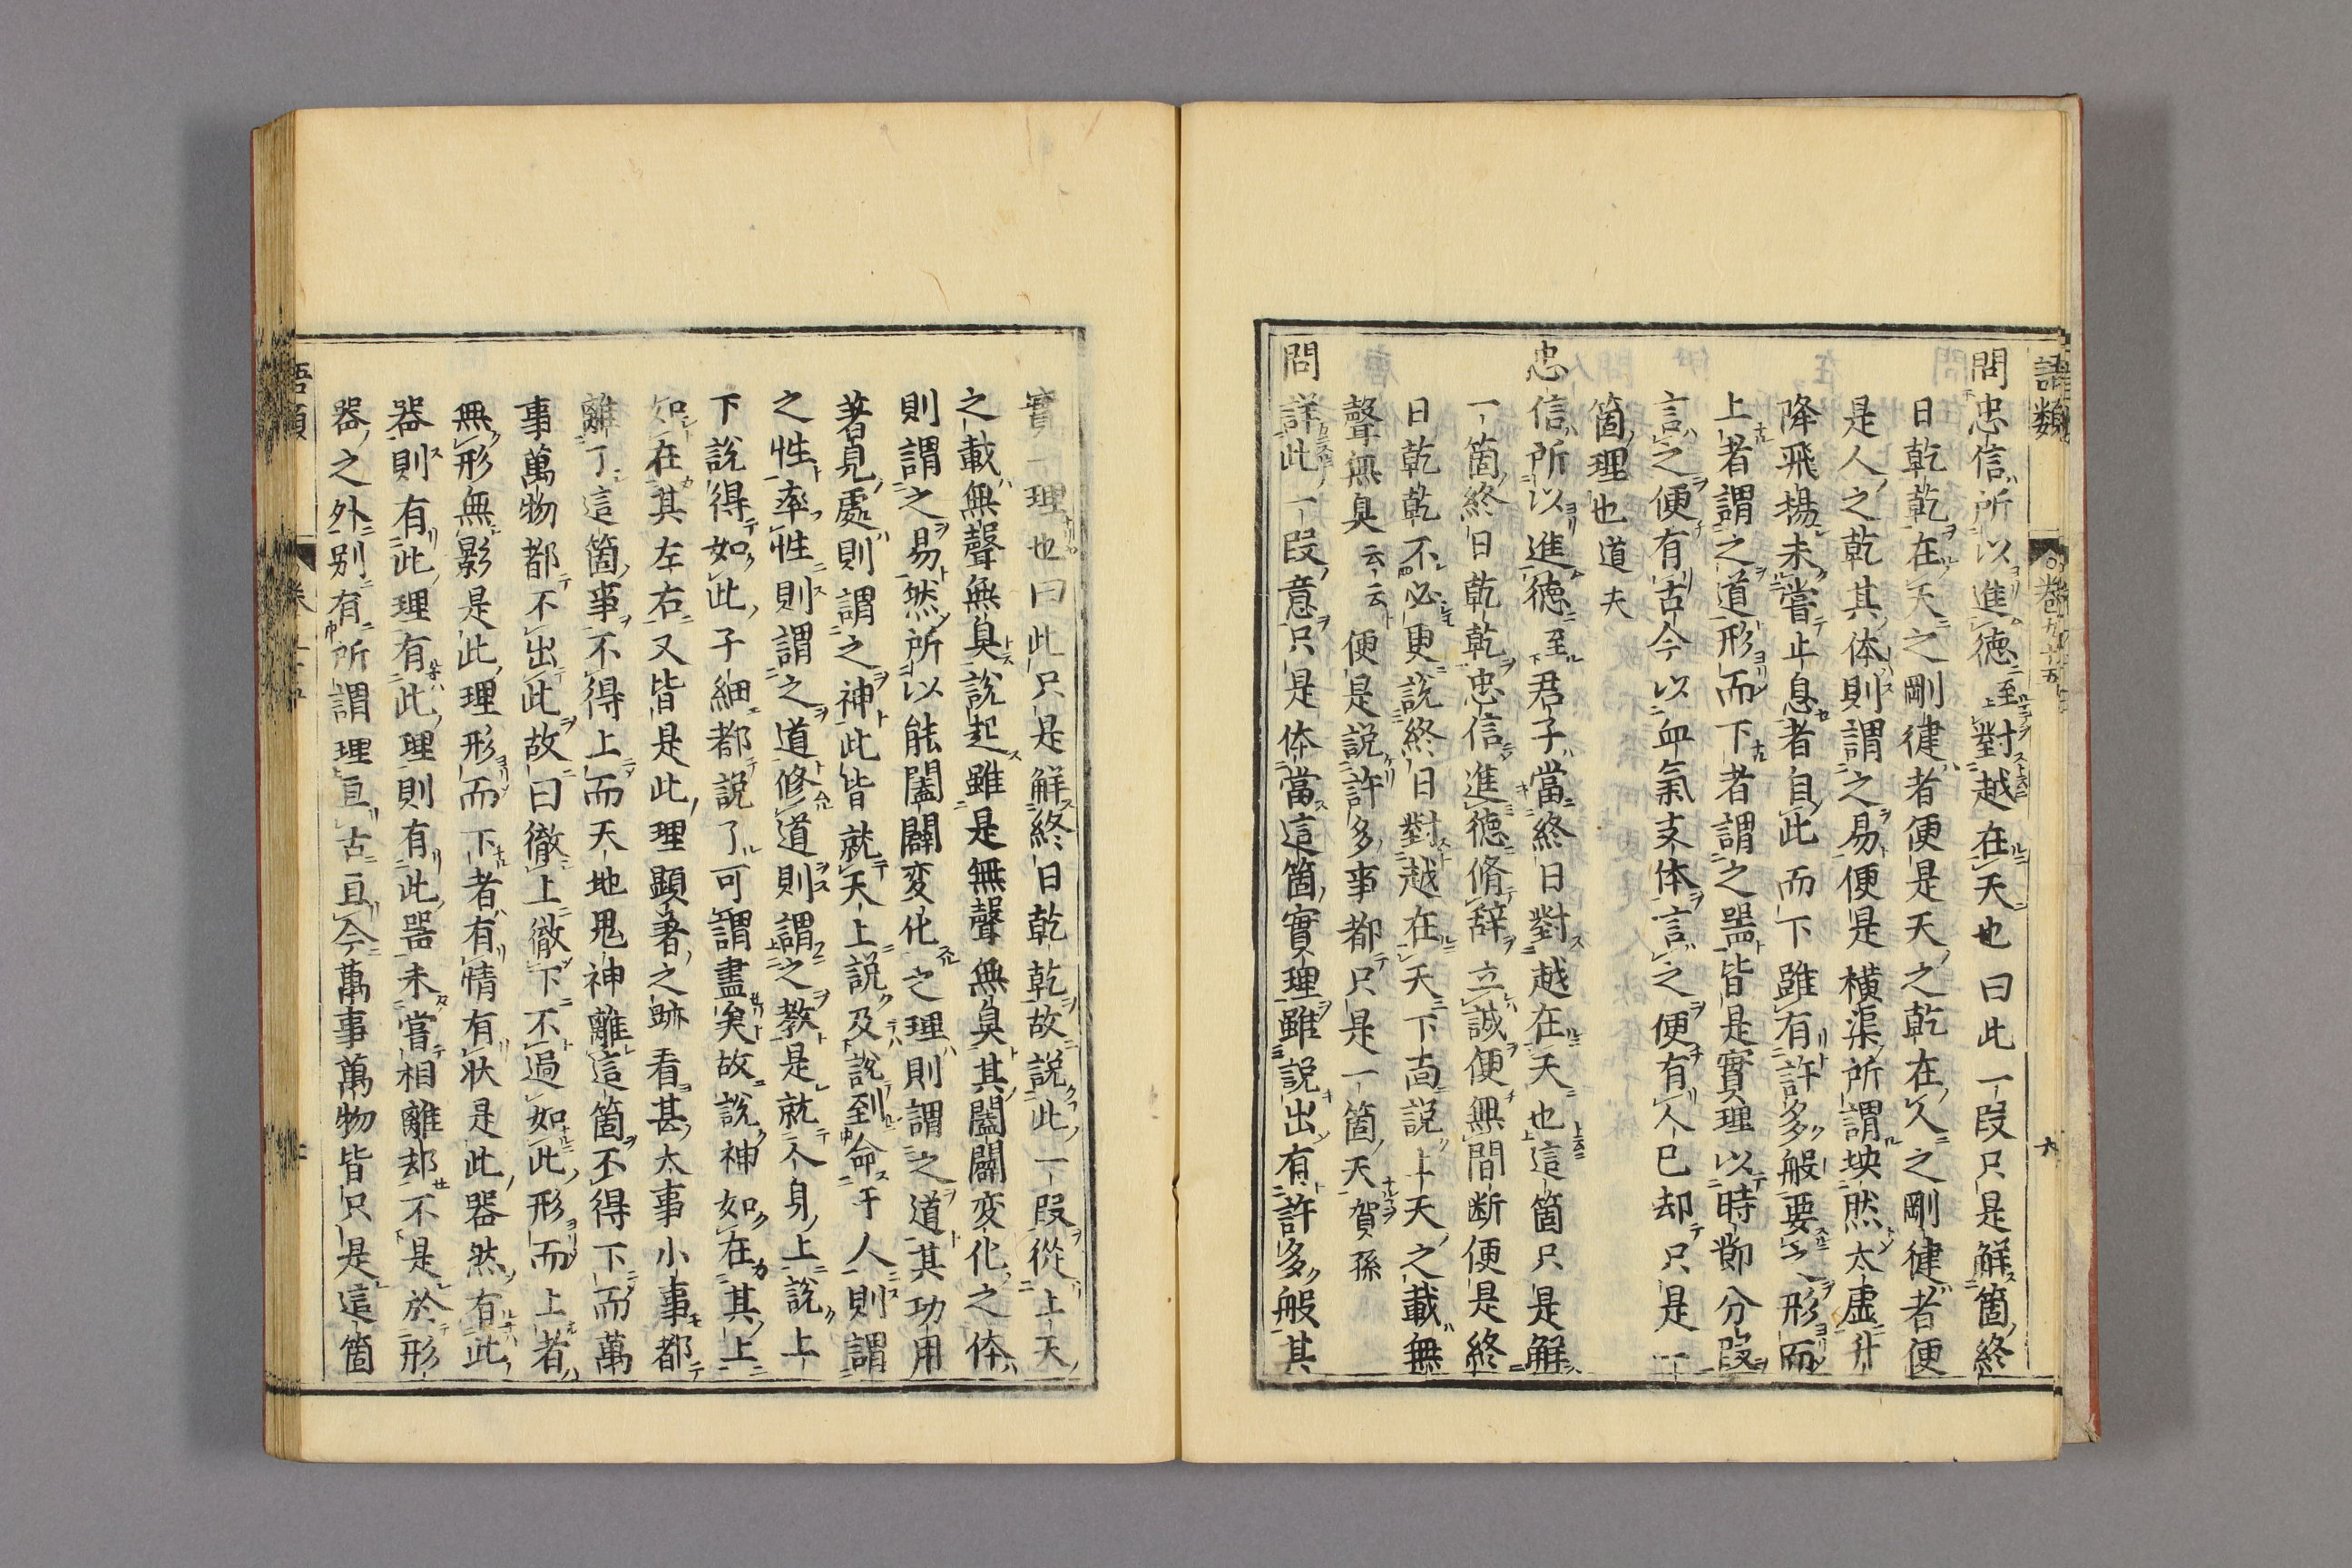 語類 卷九十五 六
問忠信所以進徳至對越在天也曰此一段只是解箇終
日乾乾在天之剛健者便是天之乾在人之剛健者便
是人之乾其体則謂之易便是横渠所謂坱然太虚升
降飛揚未嘗止息者自此而下雖有許多般要之形而
上者謂之道形而下者謂之噐皆是實理以時節分段
言之便有古今以血氣支体言之便有人己却只是一
箇理也道夫
忠信所以進徳至君子當終日對越在天也這箇只是解
一箇終日乾乾忠信進徳脩辞立誠便無間断便是終
日乾乾不必更説終日對越在天下靣説上天之載無
聲無臭云云便是説許多事都只是一箇天賀孫
問詳此一段意只是体當這箇實理雖説出有許多般其
實一理也曰此只是解終日乾乾故説此一段從上天
之載無聲無臭説起雖是無聲無臭其闔闢変化之体
則謂之易然所以能闔闢変化之理則謂之道其功用
著見處則謂之神此皆就天上説及説到命于人則謂
之性率性則謂之道修道則謂之教是就人身上説上
下説得如此子細都説了可謂盡矣故説神如在其上
如在其左右又皆是此理顕著之跡看甚大事小事都
離了這箇事不得上而天地鬼神離這箇不得下而萬
事萬物都不出此故曰徹上徹下不過如此形而上者
無形無影是此理形而下者有情有状是此器然有此
器則有此理有此理則有此噐未嘗相離却不是於形
器之外别有所謂理亘古亘今萬事萬物皆只是這箇
語類